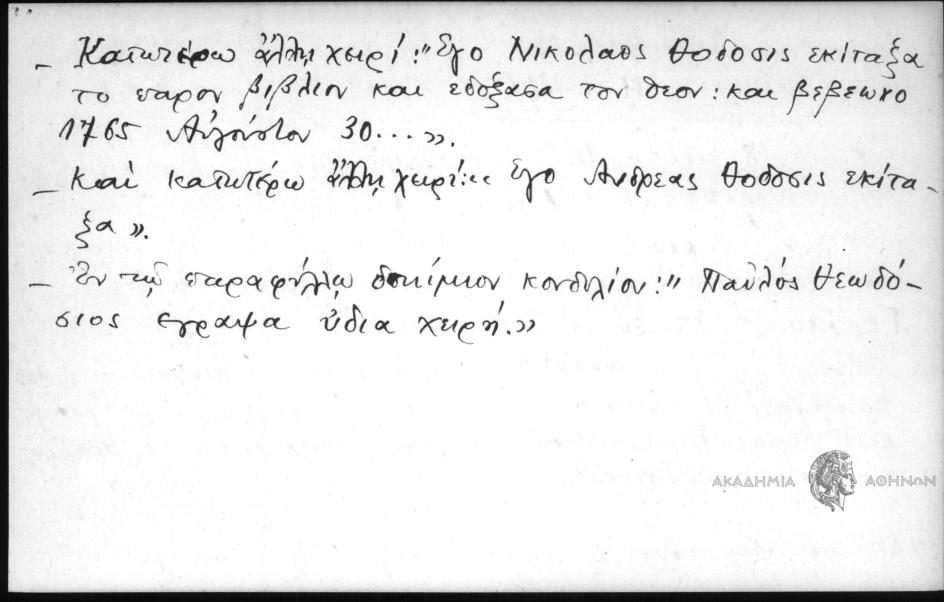 – Κατωτέρω ἄλλῃ χειρί: "Ἐγο Νικολαος θοδοσις εκίταξα
το παρον βιβλιον και εδοξασα τον θεον: και βεβεωνο
1765 Αὐγούστου 30...».
– Καὶ κατωτέρω ἄλλῃ χειρί: «Ἐγο Ανδρεας θοδοσις εκίτα-
ξα».
– Ἐν τῷ παραφύλλῳ δοκίμιον κονδυλίου: "Παῦλός θεωδό-
σιος εγραψα ὑδια χειρή.»
ΑΚΑΔΗΜΙΑ ΑΘΗΝΩΝ